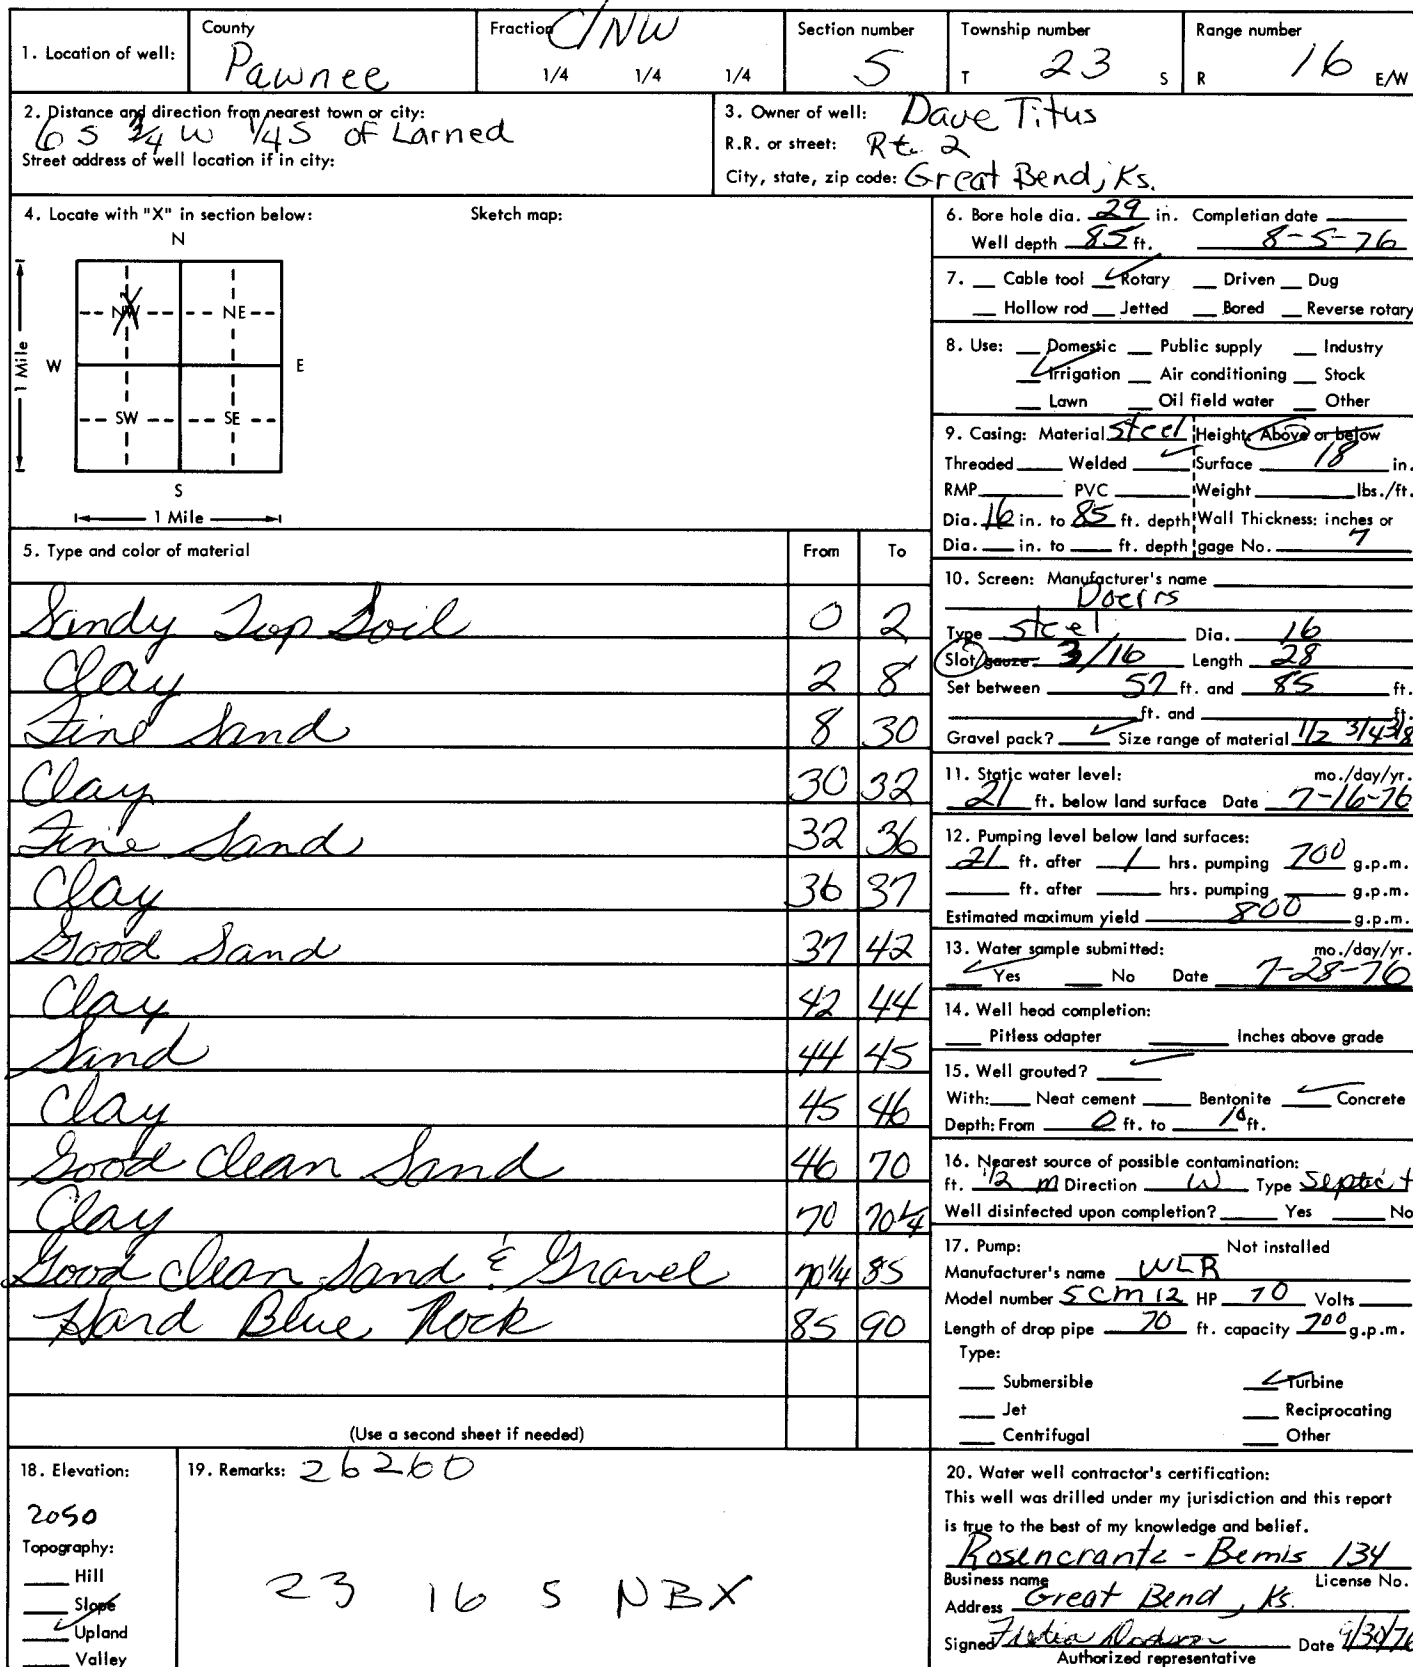 1. Location of well: County Pawnee Fraction C/NW 1/4 1/4 1/4 Section number 5 Township number T 23 S Range number R 16 E/W
2. Distance and direction from nearest town or city:
6 S 3/4 W 1/4 S of Larned
Street address of well location if in city:
3. Owner of well: Dave Titus
R.R. or street: Rt. 2
City, state, zip code: Great Bend, Ks.
4. Locate with "X" in section below: Sketch map:
N
NW NE
W E
1 Mile
SW SE
S
1 Mile
5. Type and color of material From To
Sandy Top Soil 0 2
Clay 2 8
Fine Sand 8 30
Clay 30 32
Fine Sand 32 36
Clay 36 37
Good Sand 37 42
Clay 42 44
Sand 44 45
Clay 45 46
Good clean Sand 46 70
Clay 70 70 1/4
Good clean Sand & Gravel 70 1/4 85
Hard Blue Rock 85 90
(Use a second sheet if needed)
6. Bore hole dia. 29 in. Completian date
Well depth 85 ft. 8-5-76
7. Cable tool Rotary Driven Dug
Hollow rod Jetted Bored Reverse rotary
8. Use: Domestic Public supply Industry
Irrigation Air conditioning Stock
Lawn Oil field water Other
9. Casing: Material Steel Height: Above or below
Threaded Welded Surface 18 in.
RMP PVC Weight lbs./ft.
Dia. 16 in. to 85 ft. depth Wall Thickness: inches or
Dia. in. to ft. depth gage No. 7
10. Screen: Manufacturer's name
Doerrs
Type steel Dia. 16
Slot/gauze 3/16 Length 28
Set between 57 ft. and 85 ft.
ft. and ft.
Gravel pack? Size range of material 1/2 3/4 3/8
11. Static water level: mo./day/yr.
21 ft. below land surface Date 7-16-76
12. Pumping level below land surfaces:
21 ft. after 1 hrs. pumping 700 g.p.m.
ft. after hrs. pumping g.p.m.
Estimated maximum yield 800 g.p.m.
13. Water sample submitted: mo./day/yr.
Yes No Date 7-28-76
14. Well head completion:
Pitless adapter Inches above grade
15. Well grouted?
With: Neat cement Bentonite Concrete
Depth: From 0 ft. to 10 ft.
16. Nearest source of possible contamination:
ft. 1/2 m Direction W Type Septic t
Well disinfected upon completion? Yes No
17. Pump: Not installed
Manufacturer's name WLR
Model number 5CM12 HP 70 Volts
Length of drop pipe 70 ft. capacity 700 g.p.m.
Type:
Submersible Turbine
Jet Reciprocating
Centrifugal Other
18. Elevation:
2050
Topography:
Hill
Slope
Upland
Valley
19. Remarks: 26260
23 16 5 NBX
20. Water well contractor's certification:
This well was drilled under my jurisdiction and this report
is true to the best of my knowledge and belief.
Rosencrantz - Bemis 134
Business name License No.
Address Great Bend, Ks.
Signed Date 9/30/76
Authorized representative